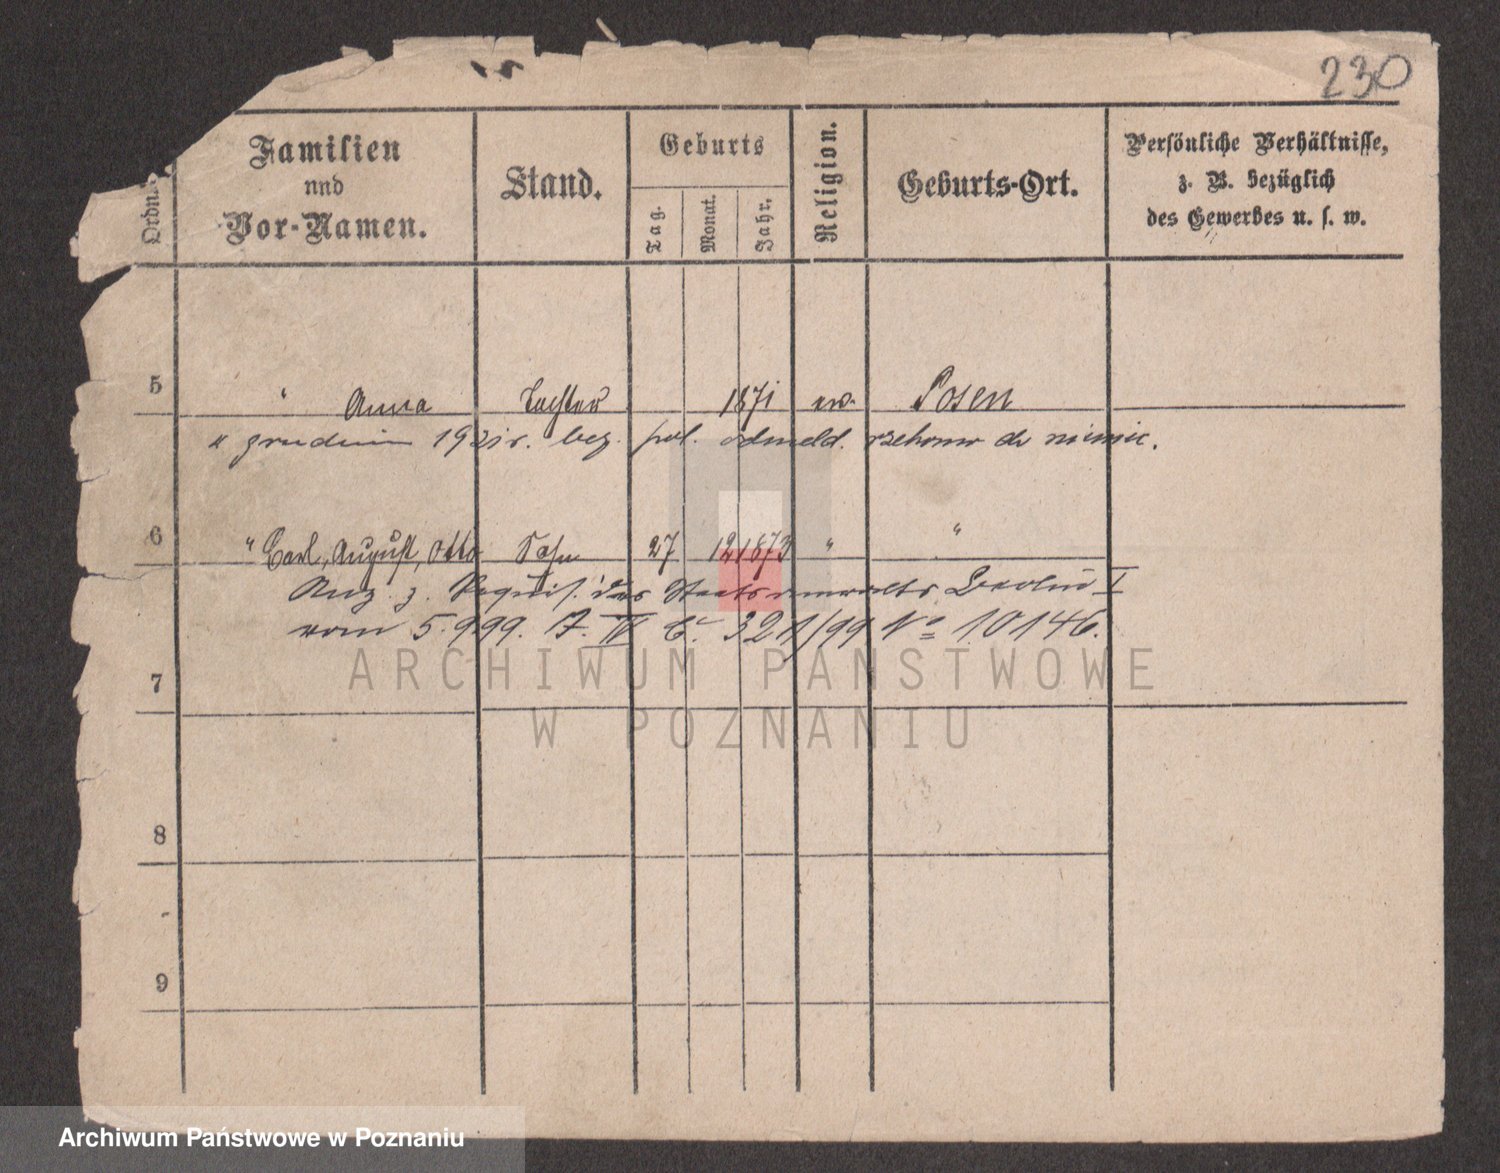 230
Ordn.
Familien
und
Vor-Namen.
Stand.
Geburts
Tag.
Monat.
Jahr.
Religion.
Geburts-Ort.
Persönliche Verhältnisse,
z. B. bezüglich
des Gewerbes u. s. w.
5 " Anna Tochter 1871 ev. Posen
w grudniu 1921 r. bez pol. odmeld. rzekomo do niemic.
6 " Carl, August, Otto Sohn 27 12 1873 " "
Anz. z. Requis. des Staatsanwalts Berlin I
vom 5.9.99. 7. IV C. 321/99 No 10146.
7
8
9
ARCHIWUM PAŃSTWOWE
W POZNANIU
Archiwum Państwowe w Poznaniu